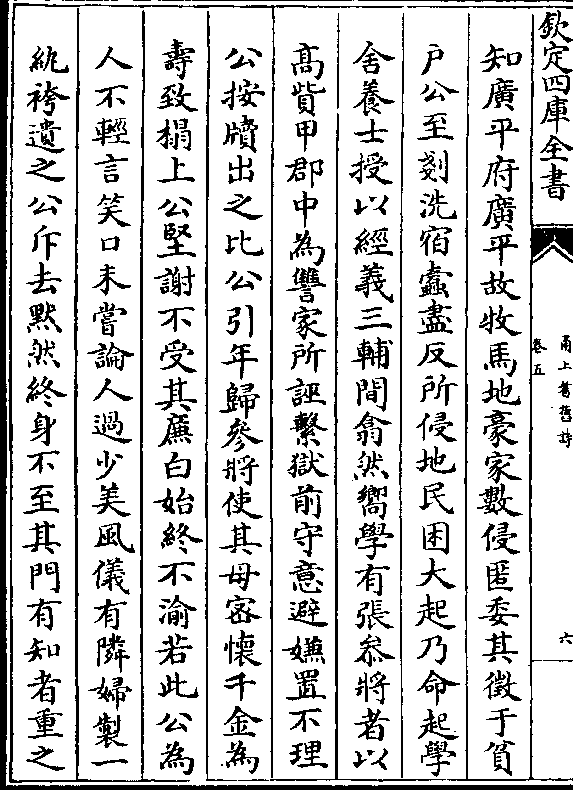 欽定四庫全書
甬上耆舊詩
卷五
六
知廣平府廣平故牧馬地豪家數侵匿委其徵于貧
戶公至剗洗宿蠧盡反所侵地民困大起乃命起學
舍養士授以經義三輔間翕然嚮學有張叅將者以
高貲甲郡中為讐家所誣繫獄前守意避嫌置不理
公按牘出之比公引年歸參將使其母宻懷千金為
壽致榻上公堅謝不受其㢘白始終不渝若此公為
人不輕言笑口未嘗論人過少美風儀有隣婦製一
紈袴遺之公斥去默然終身不至其門有知者重之